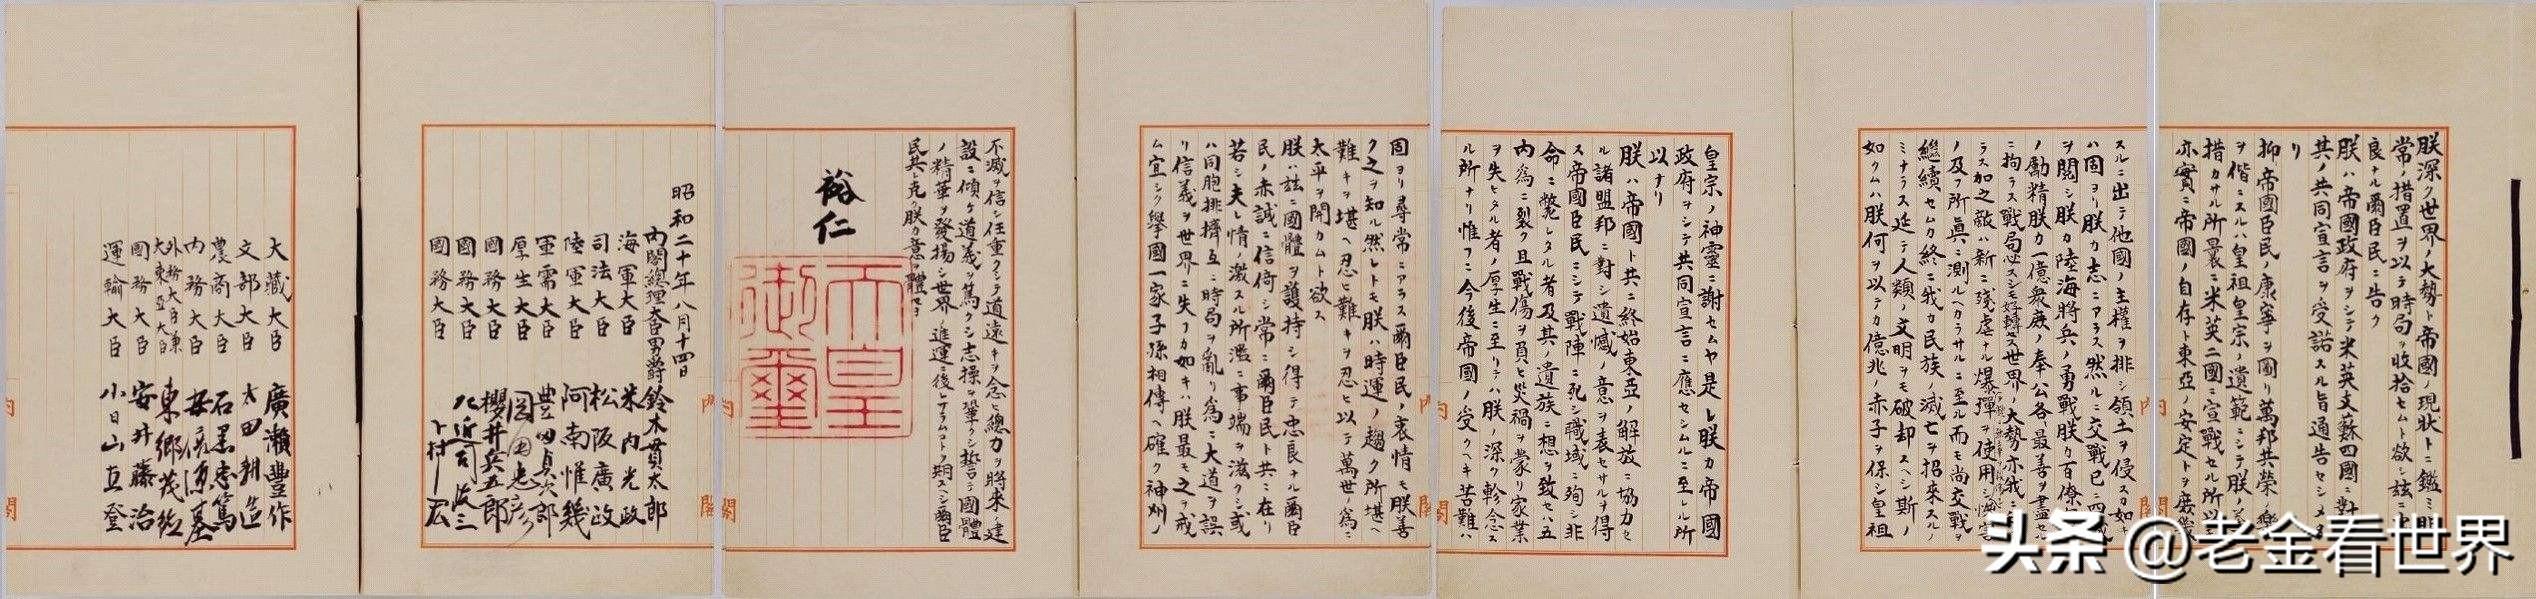 朕深ク世界ノ大勢ト帝國ノ現狀トニ鑑ミ非
常ノ措置ヲ以テ時局ヲ收拾セムト欲シ茲ニ
良ナル爾臣民ニ告ク
朕ハ帝國政府ヲシテ米英支蘇四國ニ對
其ノ共同宣言ヲ受諾スル旨通告セシメタ
リ
抑帝國臣民ノ康寧ヲ圖リ萬邦共榮ノ樂
ヲ偕ニスルハ皇祖皇宗ノ遺範ニシテ朕ノ
措カサル所曩ニ米英二國ニ宣戰セル所以
亦實ニ帝國ノ自存ト東亞ノ安定トヲ庶幾
スルニ出テ他國ノ主權ヲ排シ領土ヲ侵スカ如キ
ハ固ヨリ朕カ志ニアラス然ルニ交戰已ニ四歲
ヲ閱シ朕カ陸海將兵ノ勇戰朕カ百僚
ノ勵精朕カ一億衆庶ノ奉公各最善ヲ盡セル
ニ拘ラス戰局必スシモ好轉セス世界ノ大勢亦我ニ
ラス加之敵ハ新ニ殘虐ナル爆彈ヲ使用シ慘害
ノ及フ所眞ニ測ルヘカラサルニ至ル而モ尙交戰ヲ
繼續セムカ終ニ我カ民族ノ滅亡ヲ招來スルノ
ミナラス延テ人類ノ文明ヲモ破却スヘシ斯ノ
如クムハ朕何ヲ以テカ億兆ノ赤子ヲ保シ皇祖
皇宗ノ神靈ニ謝セムヤ是レ朕カ帝國
政府ヲシテ共同宣言ニ應セシムルニ至レル所
以ナリ
朕ハ帝國ト共ニ終始東亞ノ解放ニ協力セ
ル諸盟邦ニ對シ遺憾ノ意ヲ表セサルヲ得
ス帝國臣民ニシテ戰陣ニ死シ職域ニ殉シ非
命ニ斃レタル者及其ノ遺族ニ想ヲ致セハ五
內爲ニ裂ク且戰傷ヲ負ヒ災禍ヲ蒙リ家業
ヲ失ヒタル者ノ厚生ニ至リテハ朕ノ深ク軫念ス
ル所ナリ惟フニ今後帝國ノ受クヘキ苦難ハ
固ヨリ尋常ニアラス爾臣民ノ衷情モ朕善
ク之ヲ知ル然レトモ朕ハ時運ノ趨ク所堪ヘ
難キヲ堪ヘ忍ヒ難キヲ忍ヒ以テ萬世ノ爲ニ
太平ヲ開カムト欲ス
朕ハ茲ニ國體ヲ護持シ得テ忠良ナル爾臣
民ノ赤誠ニ信倚シ常ニ爾臣民ト共ニ在リ
若シ夫レ情ノ激スル所濫ニ事端ヲ滋クシ或
ハ同胞排擠互ニ時局ヲ亂リ爲ニ大道ヲ誤
リ信義ヲ世界ニ失フカ如キハ朕最モ之ヲ戒
ム宜シク擧國一家子孫相傳ヘ確ク神州ノ
不滅ヲ信シ任重クシテ道遠キヲ念ヒ總力ヲ將來ノ建
設ニ傾ケ道義ヲ篤クシ志操ヲ鞏クシ誓テ國體
ノ精華ヲ發揚シ世界ノ進運ニ後レサラムコトヲ期スヘシ爾臣
民其レ克ク朕カ意ヲ體セヨ
裕仁
天皇
御璽
昭和二十年八月十四日
內閣總理大臣男爵 鈴木貫太郎
海軍大臣 米內光政
司法大臣 松阪廣政
陸軍大臣 阿南惟幾
軍需大臣 豊田貞次郎
厚生大臣 岡田忠彥
國務大臣 櫻井兵五郎
國務大臣 左近司政三
國務大臣 下村宏
大藏大臣 廣瀨豐作
文部大臣 太田耕造
農商大臣 石黑忠篤
內務大臣 安倍源基
外務大臣兼
大東亞大臣 東鄉茂德
國務大臣 安井藤治
運輸大臣 小日山直登
內閣
內閣
內閣
头条 @老金看世界